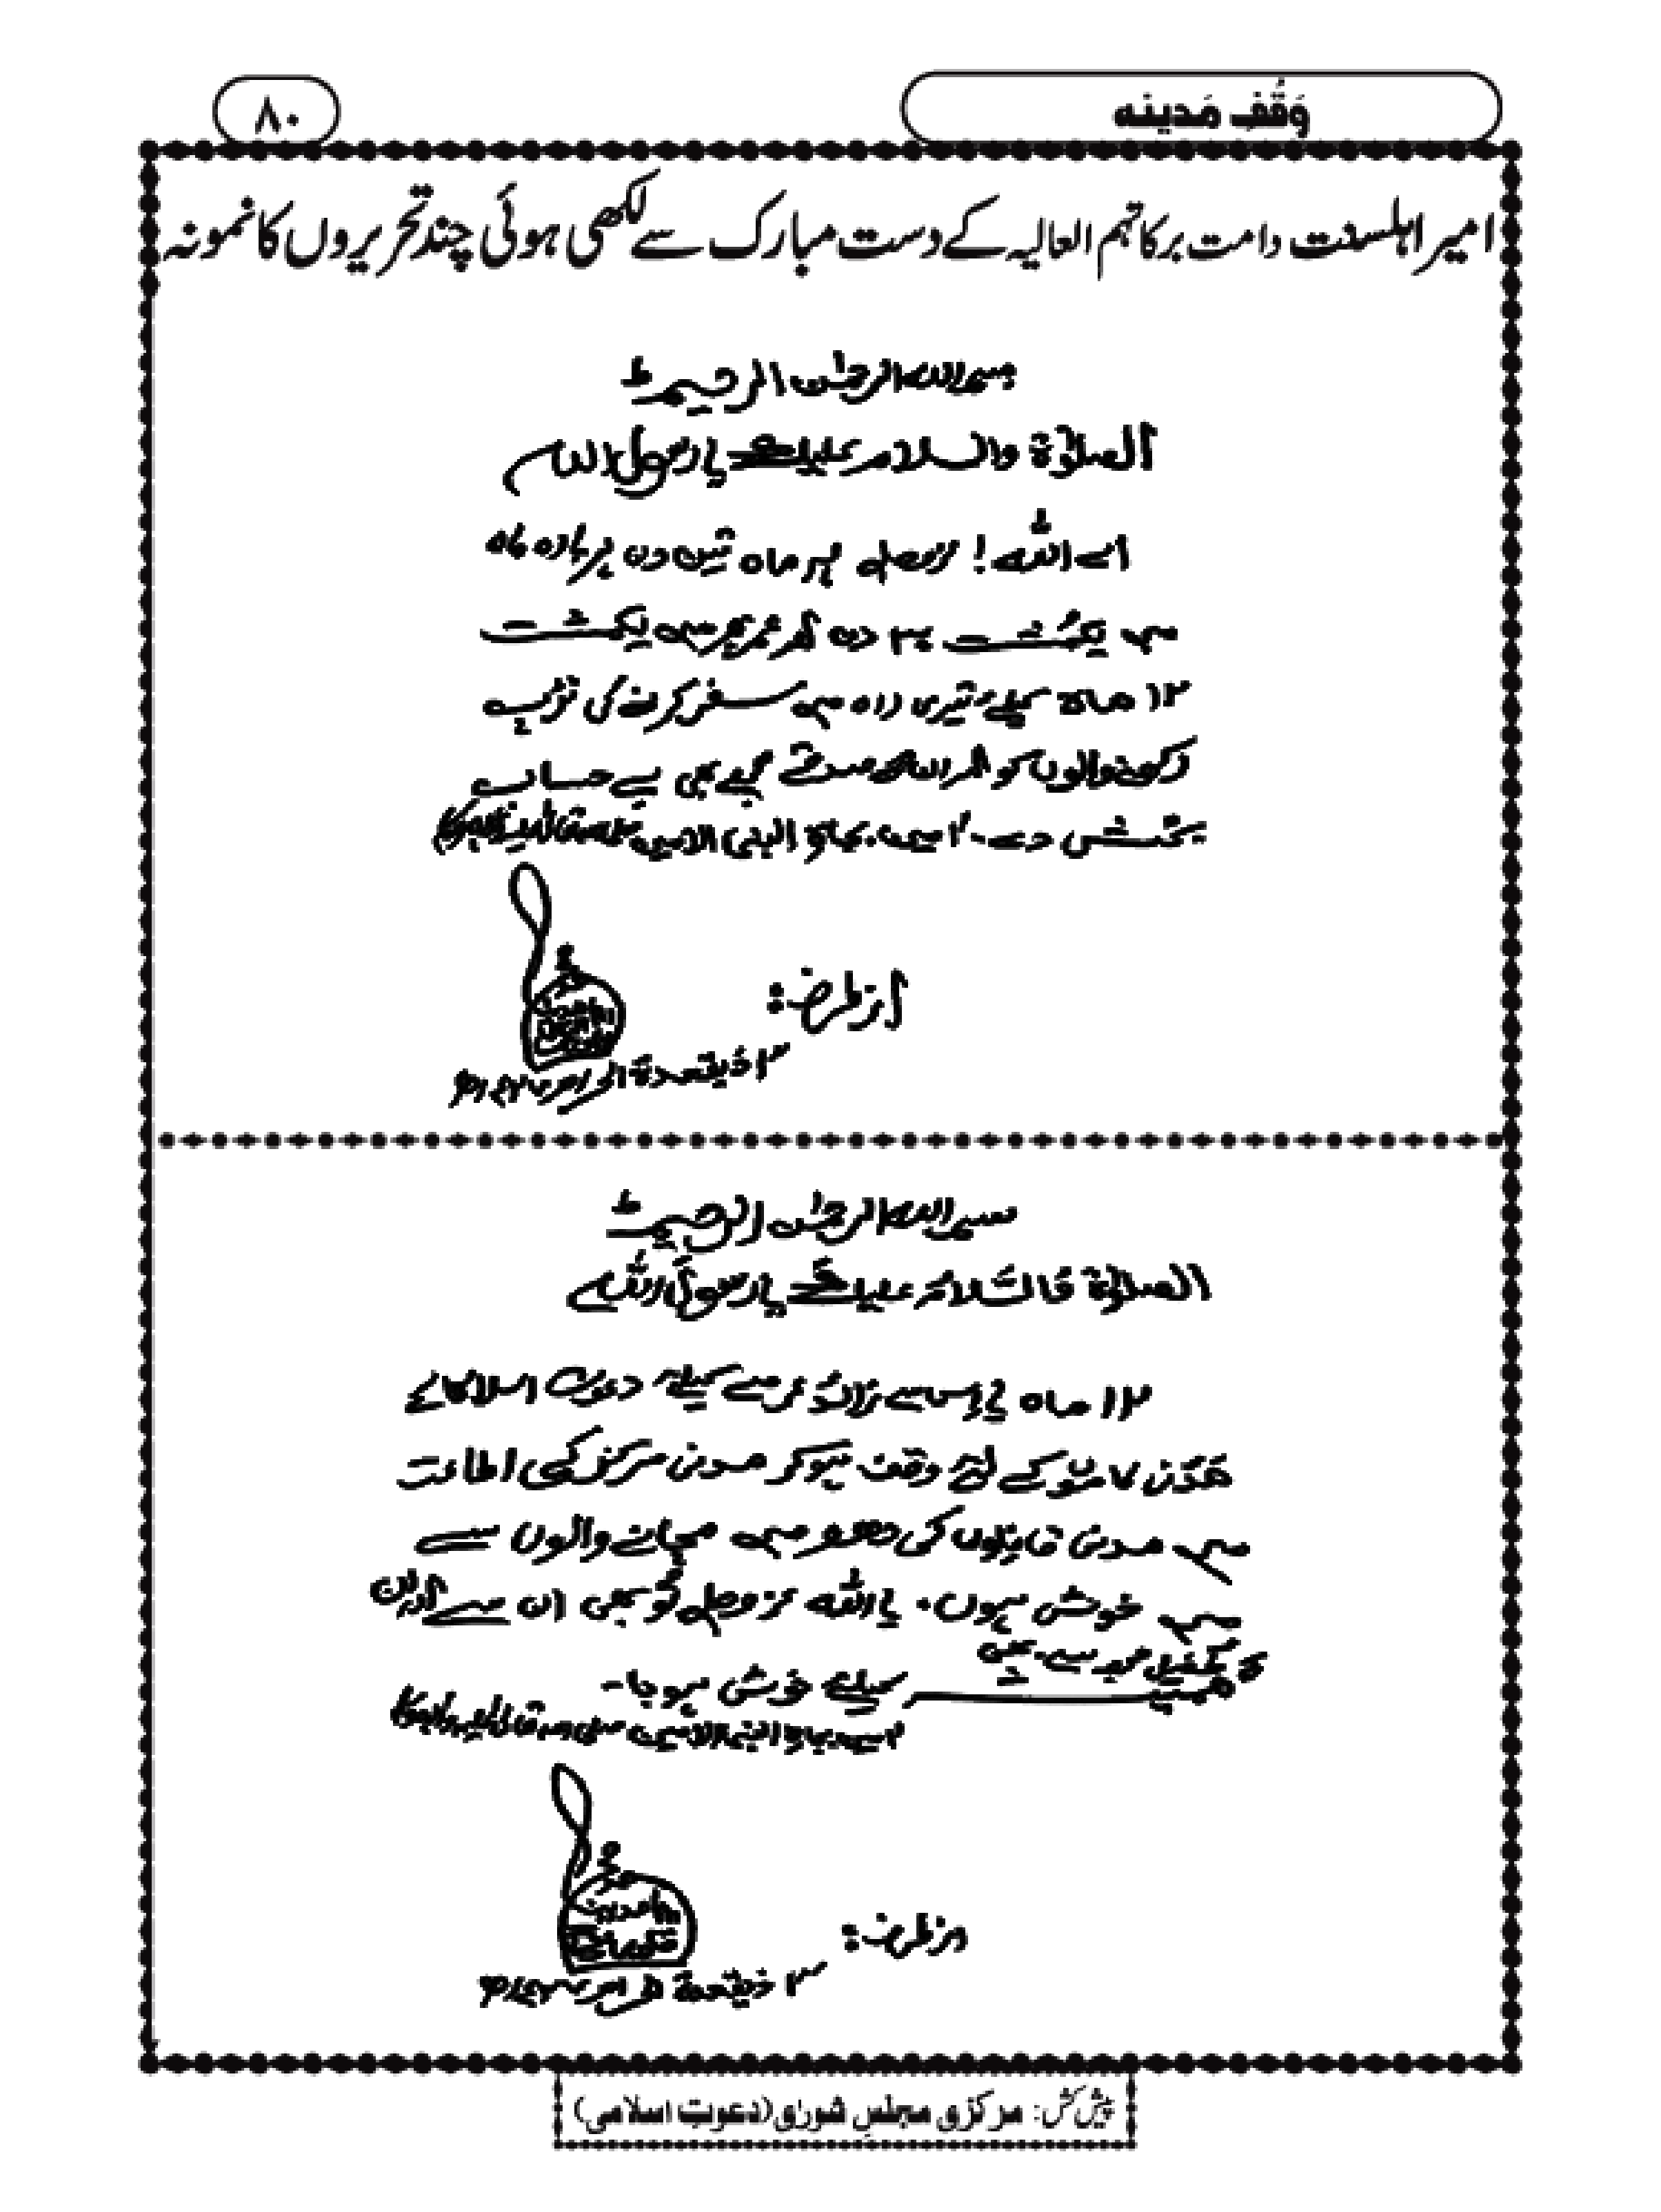 وَقْفِ مَدینه
۸۰
امیر اہلسنت دامت برکاتہم العالیہ کے دست مبارک سے لکھی ہوئی چند تحریروں کا نمونہ
بسم اللہ الرحمٰن الرحیم ط
الصلوٰۃ والسلام علیک یا رسول اللہ
اے اللہ! عزوجل ہر ماہ تین دن ہر بارہ ماہ
میں یکمشت ۳۰ دن اور عمر بھر میں یکمشت
۱۲ ماہ کیلئے تیری راہ میں سفر کرنے کی تڑپ
رکھنے والوں کو اور ان کے صدقے مجھے بھی بے حساب
بخش دے۔ امین بجاہ النبی الامین صلی اللہ تعالیٰ علیہ والہ وسلم
از طرف:
۳ ذیقعدۃ الحرام
بسم اللہ الرحمٰن الرحیم ط
الصلوٰۃ وَالسَّلامُ علیکَ یا رسولَ اللہ
۱۲ ماہ یا اس سے زائد عرصے کیلئے دعوت اسلامی کے
مَدَنی کاموں کے لئے وقف ہوکر مدنی مرکز کی اطاعت
میں مدنی قافلوں کی دھوم میں مچانے والوں سے
میں خوش ہوں۔ یا اللہ عزوجل تُو بھی ان سے اور ان
کے طفیل مجھ سے بھی
ہمیشہ کیلئے خوش ہوجا۔
امین بجاہ النبی الامین صلی اللہ تعالیٰ علیہ والہ وسلم
از طرف:
۳ ذیقعدۃ الحرام
پیش کش: مرکزی مجلسِ شوریٰ (دعوتِ اسلامی)